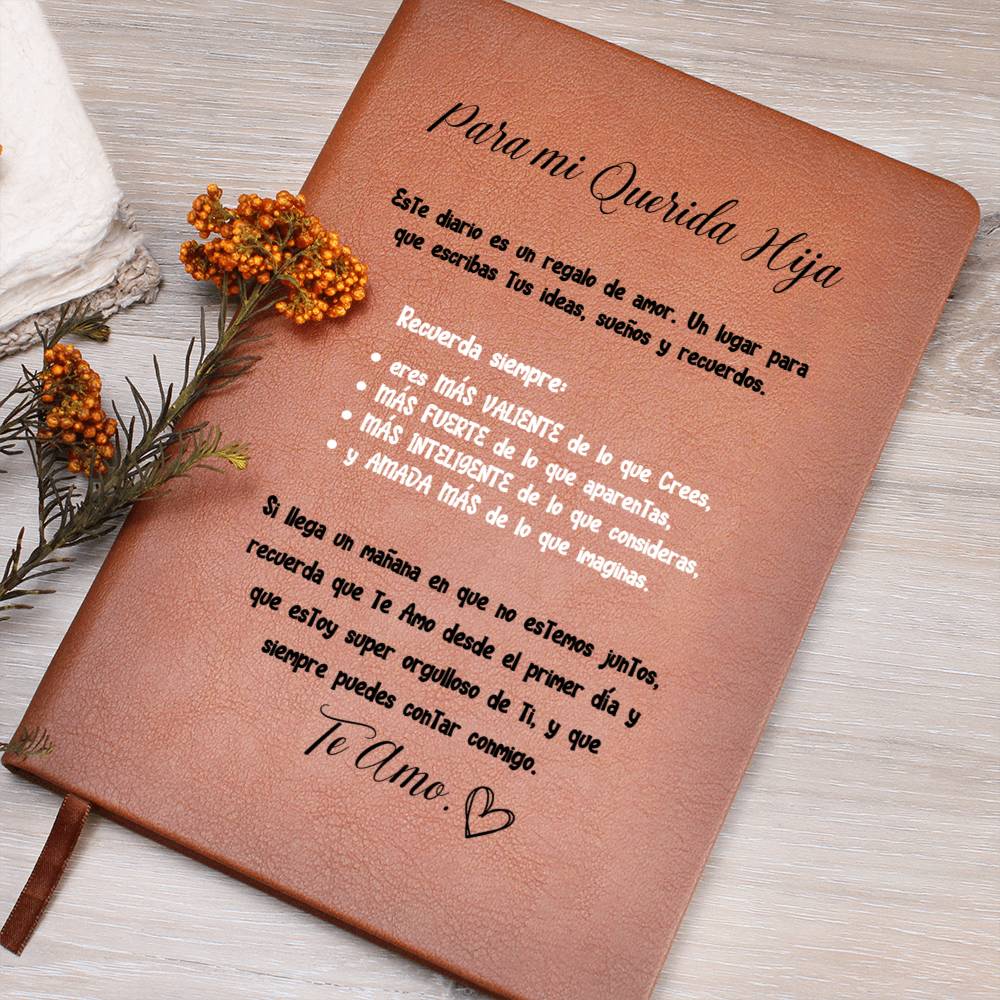 Para mi Querida Hija
EsTe diario es un regalo de amor. Un lugar para
que escribas Tus ideas, sueños y recuerdos.
Recuerda siempre:
• eres MÁS VALIENTE de lo que Crees,
• MÁS FUERTE de lo que aparenTas,
• MÁS INTELIGENTE de lo que consideras,
• y AMADA MÁS de lo que imaginas.
Si llega un mañana en que no esTemos junTos,
recuerda que Te Amo desde el primer día y
que esToy super orgulloso de Ti, y que
siempre puedes conTar conmigo.
Te Amo.